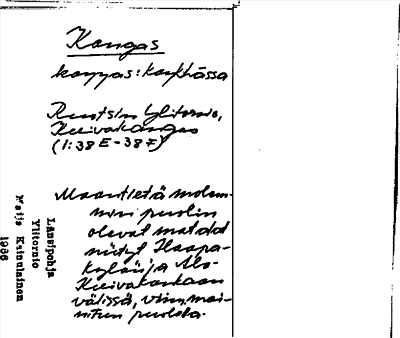 Kangas
kaŋŋas: kaŋkhāssa
Ruotsin Ylitornio,
Kuivakangas
(1:38 E-38 F)
Maantietä molem-
min puolin
olevat matalat
niityt Haapa-
kylän ja Ala-
Kuivakankaan
välissä, viim. mai-
nitun puolella.
Länsipohja
Ylitornio
Maija Kainulainen
1966